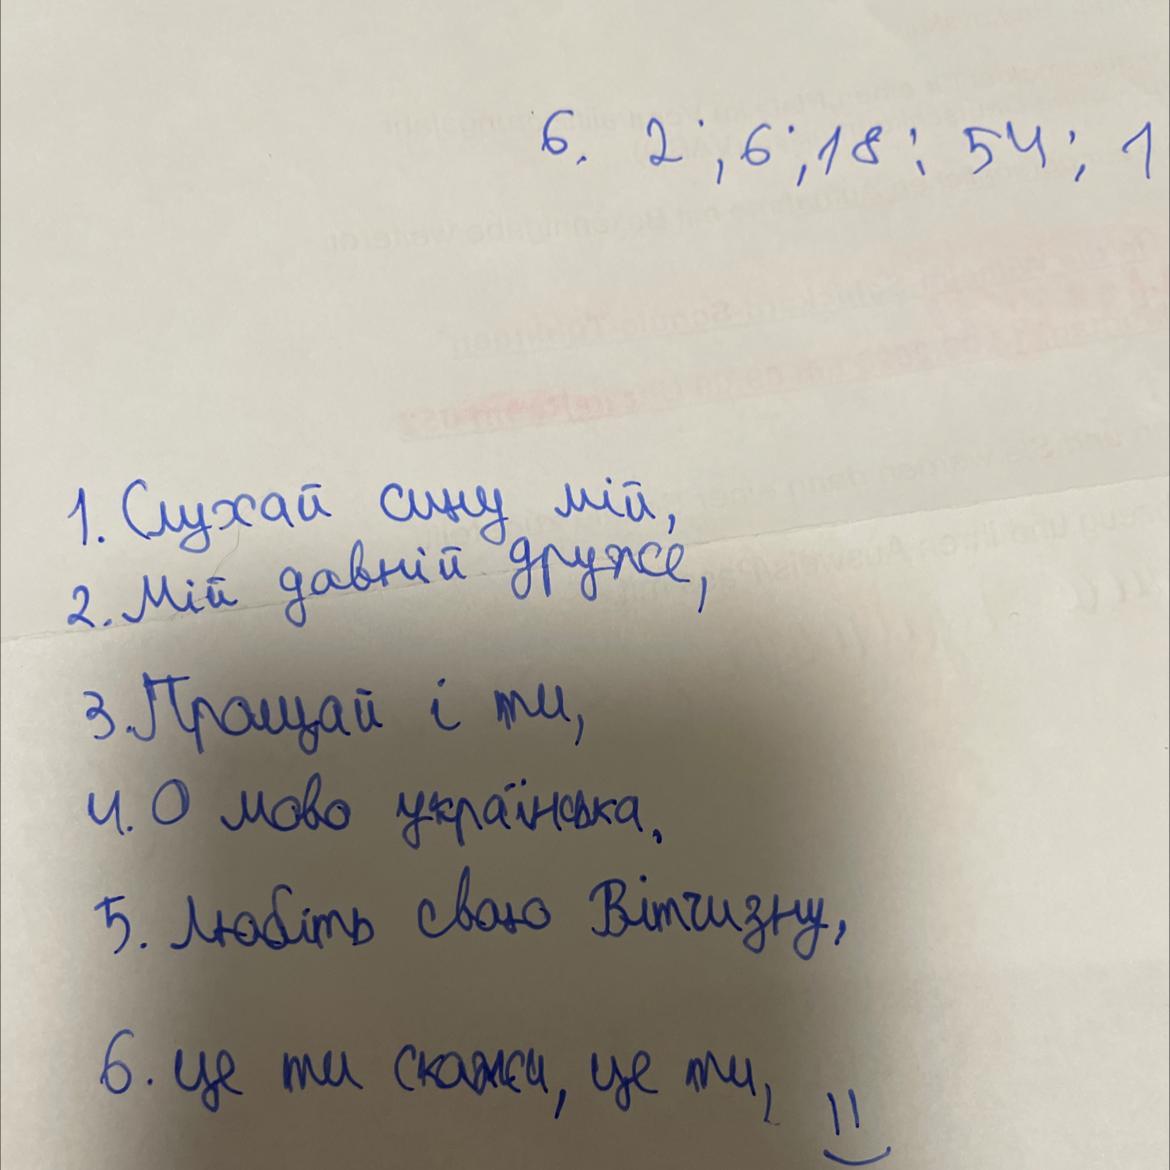 6. 2; 6; 18; 54; 1
1. Слухай сину мій,
2. Мій давній друже,
3. Прощай і ти,
4. О мово українська,
5. Любіть свою Вітчизну,
6. це ти скажи, це ти,